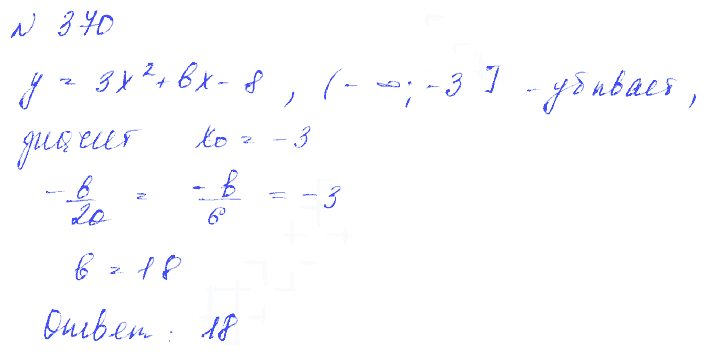 № 370
y = 3x² + bx - 8, (-∞; -3] - убывает,
значит x₀ = -3
-b/2a = -b/6 = -3
b = 18
Ответ: 18